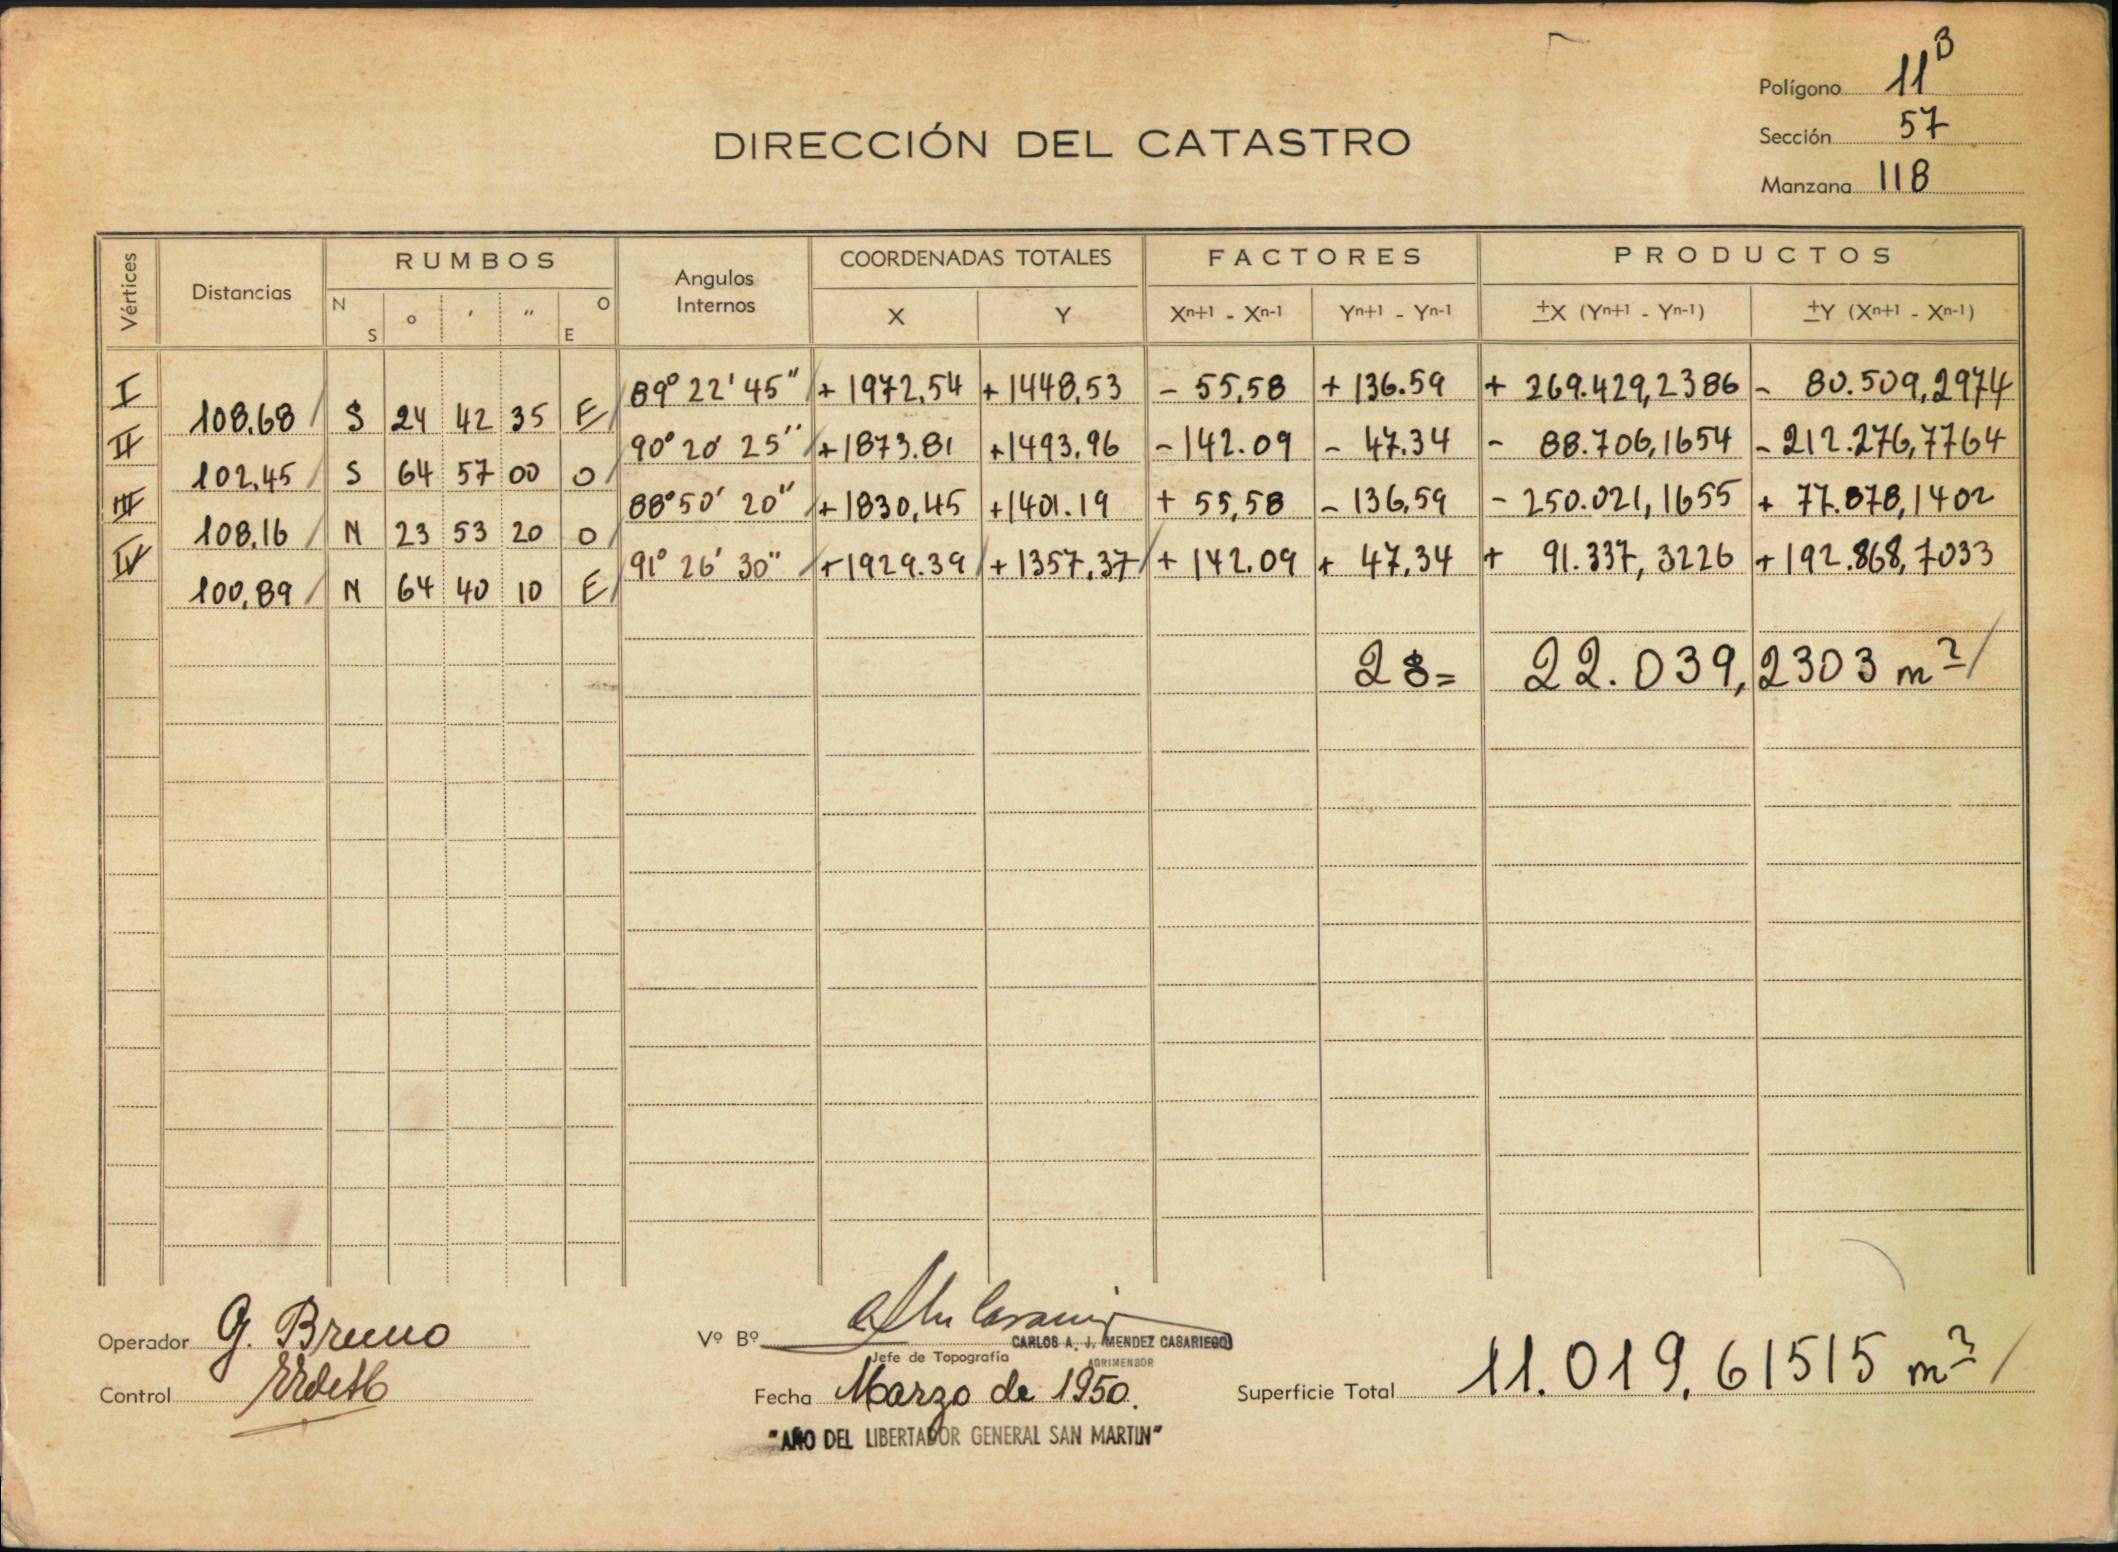 Polígono 11 B
Sección 57
Manzana 118
DIRECCIÓN DEL CATASTRO
Vértices Distancias RUMBOS Angulos Internos COORDENADAS TOTALES FACTORES PRODUCTOS
N S o ' " O E X Y Xn+1 - Xn-1 Yn+1 - Yn-1 ±X (Yn+1 - Yn-1) ±Y (Xn+1 - Xn-1)
I 89° 22' 45" + 1972,54 + 1448,53 - 55,58 + 136.59 + 269.429,2386 - 80.509,2974
108,68 S 24 42 35 E
II 90° 20' 25" + 1873.81 + 1493,96 - 142.09 - 47.34 - 88.706,1654 - 212.276,7764
102,45 S 64 57 00 O
III 88° 50' 20" + 1830,45 + 1401.19 + 55,58 - 136,59 - 250.021,1655 + 77.878,1402
108,16 N 23 53 20 O
IV 91° 26' 30" + 1929.39 + 1357,37 + 142.09 + 47,34 + 91.337,3226 + 192.868,7033
100,89 N 64 40 10 E
2S= 22.039,2303 m²
Operador G. Bruno
Vº Bº
CARLOS A. J. MENDEZ CASARIEGO
Jefe de Topografía AGRIMENSOR
Control
Fecha Marzo de 1950.
Superficie Total 11.019,61515 m²
"AÑO DEL LIBERTADOR GENERAL SAN MARTIN"